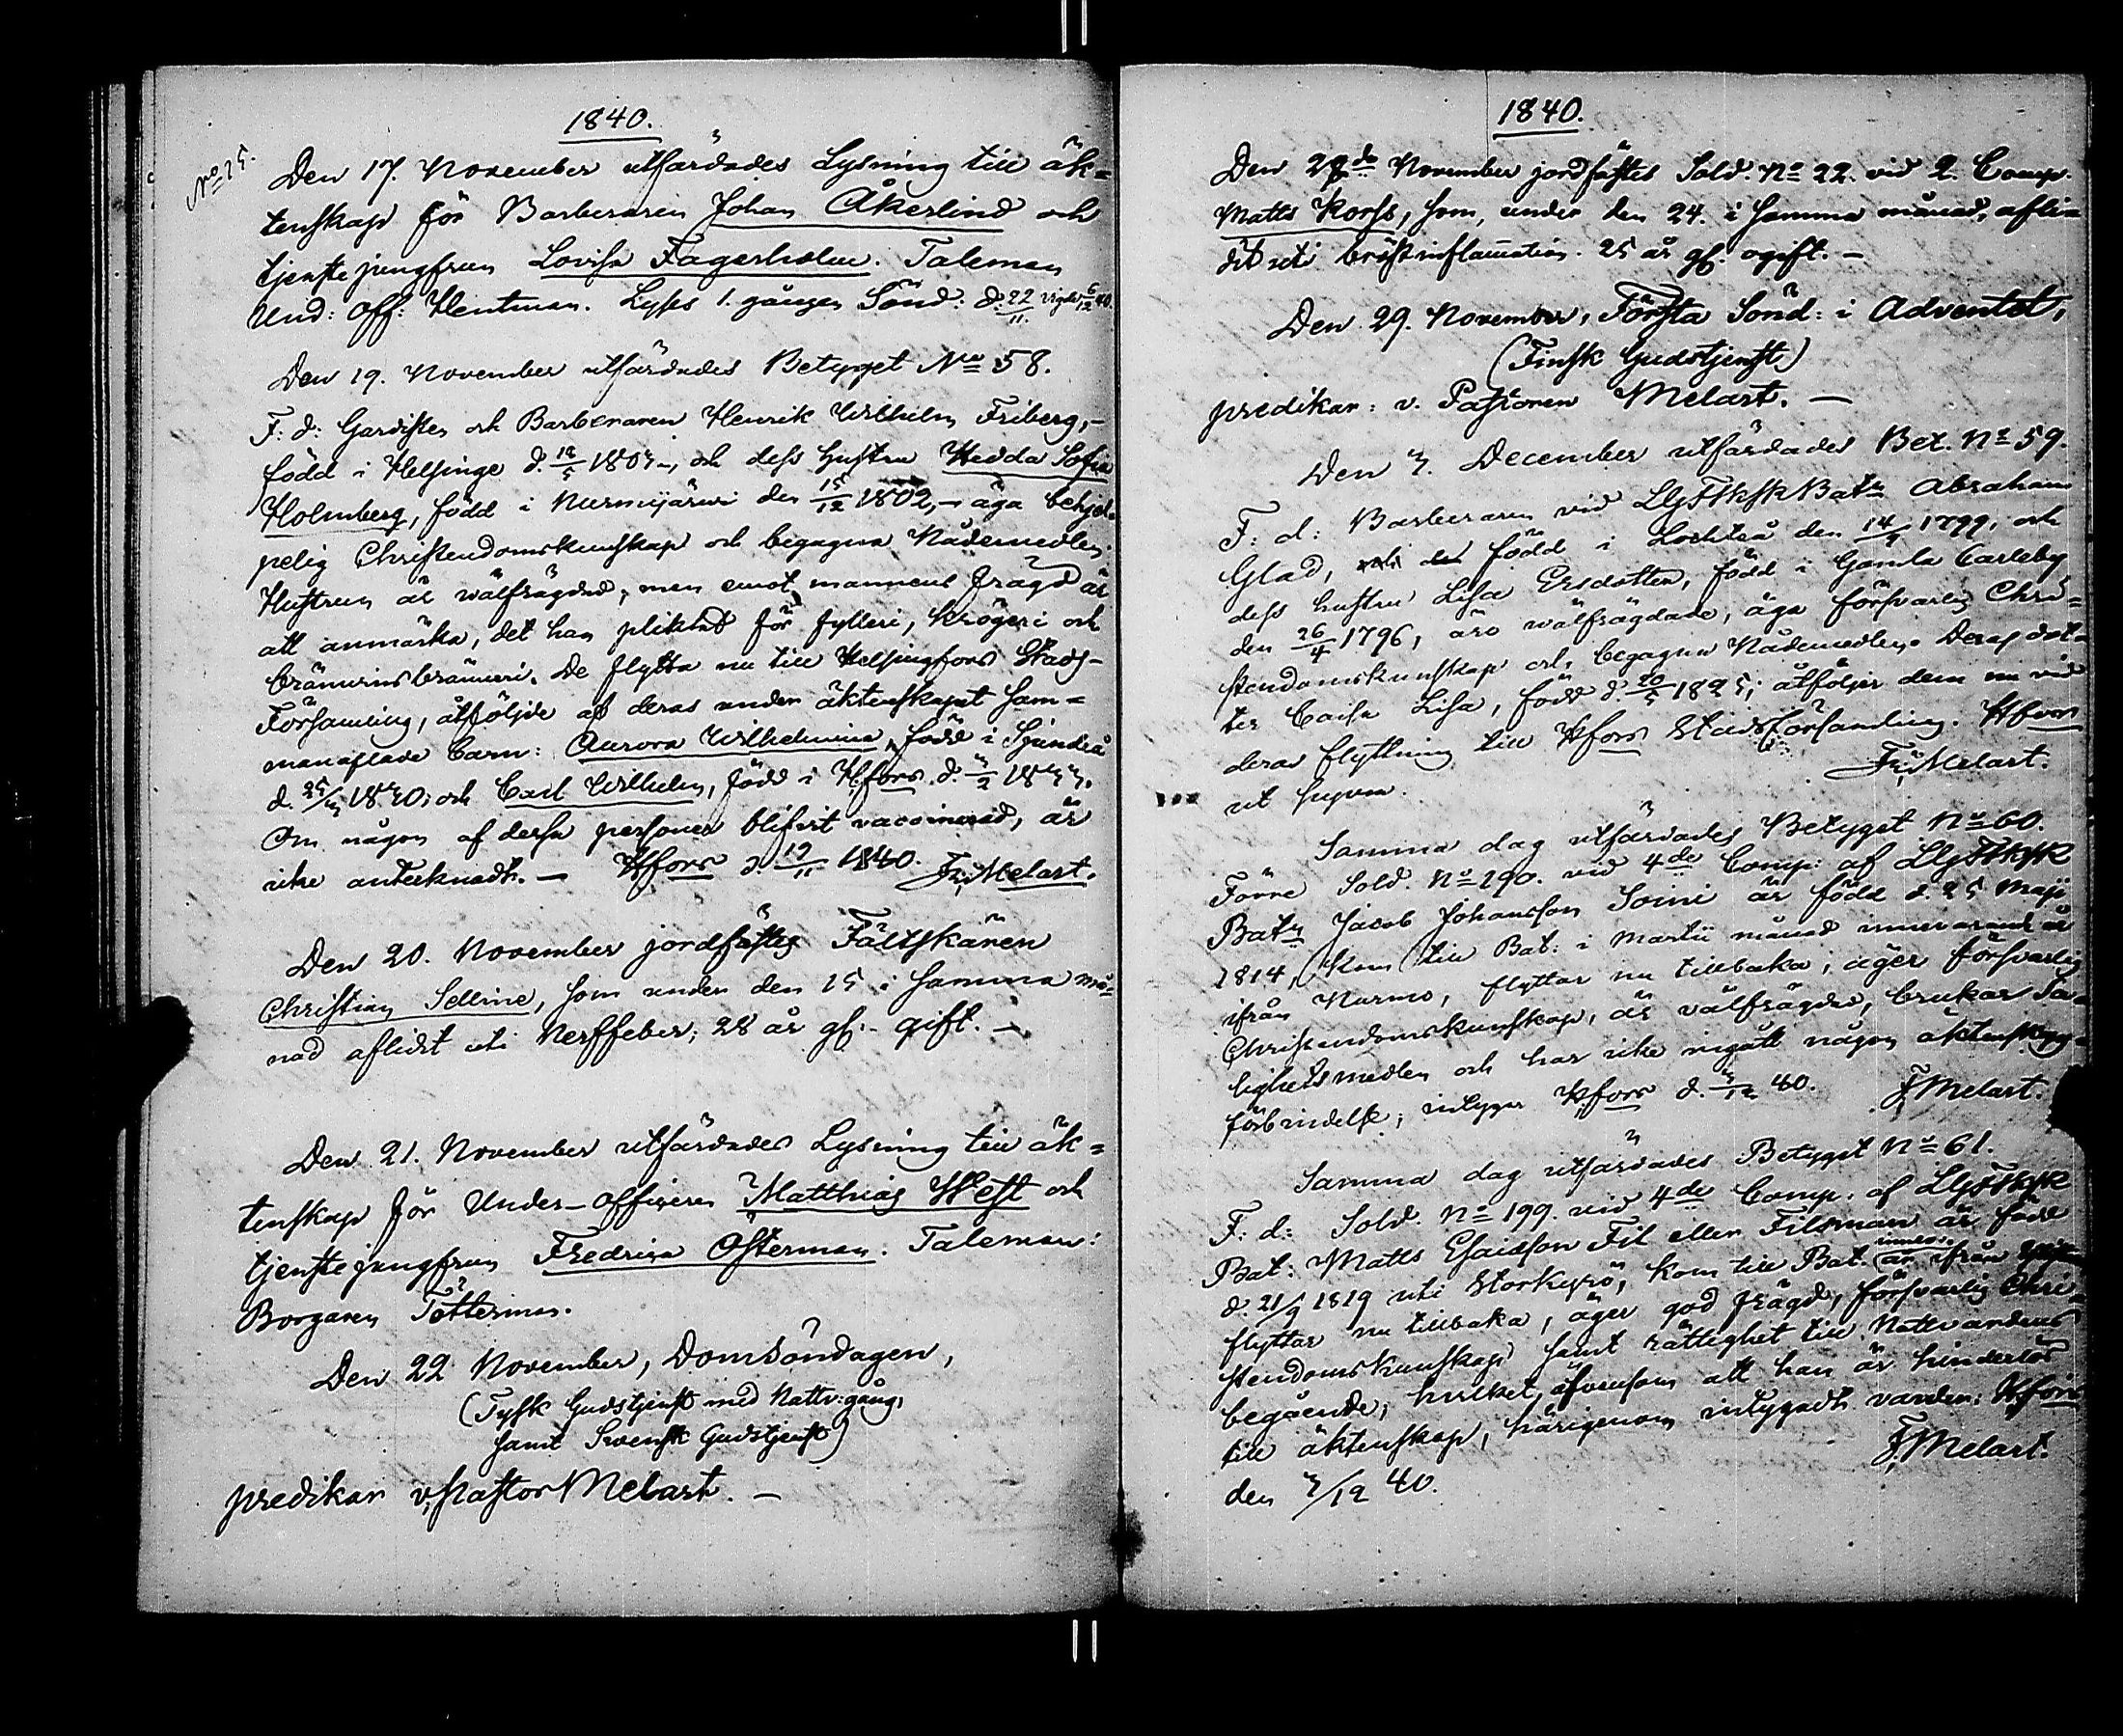 1840.
No 25.
Den 17. November utfärdades Lysning till äk=
tenskap för Barberaren Johan Åkerlind och
tjenstejungfrun Lovisa Fagerholm. Taleman
Und: Off: Hentman. Lyses 1. gången Sönd: d. 22/11. vigde 6/12 40.
Den 19. November utfärdades Betyget No 58.
F: d: Gardisten och Barberaren Henrik Wilhelm Friberg,-
född i Helsinge d. 1803-, och dess hustru Hedda Sofia
Holmberg, född i Nurmijärvi den 15/12 1802,- äga behjel=
pelig Christendomskunskap och begagna Nådemedlen.
Hustrun är wälfrägdad, men emot mannens frägd är
att anmärka, det han pliktat för fylleri, krögeri och
bränvinsbränneri. De flytta nu till Helsingfors Stads-
Församling, åtföljde af deras under äktenskapet sam=
manaflade barn: Aurora Wilhelmina, född i Sjundeå
d. 25/3 1830; och Carl Wilhelm, född i Hfors d. 3/2 1833.
Om någon af dessa personer blifvit vaccinerad, är
icke antecknadt. - Hfors d. 19/11 1840. Fr. Melart.
Den 20. November jordfästes Fältskären
Christian Selline, som under den 15 i samma må=
nad aflidit uti Nerffeber; 28 år gl. - gift. -
Den 21. November utfärdades Lysning till äk=
tenskap för Under-officeren Matthias West och
tjenstejungfrun Fredrica Österman. Taleman:
Borgaren Tötterman.
Den 22 November, Domsöndagen,
(Tysk Gudstjenst med Nattv:gång,
samt Svensk Gudstjenst)
predikar v. Pastor Melart. -
1840.
Den November jordfästes Sold. No 22. vid 2. Comp.
Matts Korss, som, under den 24. i samma månad, afli=
dit uti bröstinflamation. 25 år gl. ogift. -
Den 29. November, Första Sönd: i Adventet,
(Finsk Gudstjenst)
predikar: v. Pastoren Melart. -
Den 3. December utfärdades Bet. No 59.
F: d: Barberaren vid LGFSkskBatn Abraham
Glad, född i Lochteå den 1799, och
dess hustru Lisa Ersdotter, född i Gamla Carleby
den 26/4 1796, äro wälfrägdade, äga försvarlig Chri=
stendomskunskap och begagna Nådemedlen. Deras dot=
ter Caisa Lisa, född d. 20/5 1825, åtföljer dem nu vid
deras flyttning till Hfors Stadsförsamling. Hfors
ut supra. Fr. Melart.
Samma dag utfärdades Betyget No 60.
Förre Sold. No 190. vid 4de Comp: af LGFSksk
Batn Jacob Johansson Soini är född d. 25 Maji
1814, kom till Bat: i Martii månad innevarande år
ifrån Nurmo, flyttar nu tillbaka; äger försvarlig
Christendomskunskap, är välfrägdad, brukar Sa=
lighetsmedlen och har icke ingått någon äktenskaps=
förbindelse; intygar Hfors d. 3/12 40. F. Melart.
Samma dag utfärdades Betyget No 61.
F: d: Sold. No 199. vid 4de Comp. af LGFSksk
Bat: Matts Esaidson Fil eller Filsman är född
d. 21/9 1819 uti Storkyrö, kom till Bat. innev. år ifrån
flyttar nu tillbaka, äger god frägd, försvarlig Chri=
stendomskunskap samt rättighet till Nattvardens
begående; hvilket, äfvensom att han är hinderlös
till äktenskap, härigenom intygadt varder: Hfors
den 3/12 40. F. Melart.